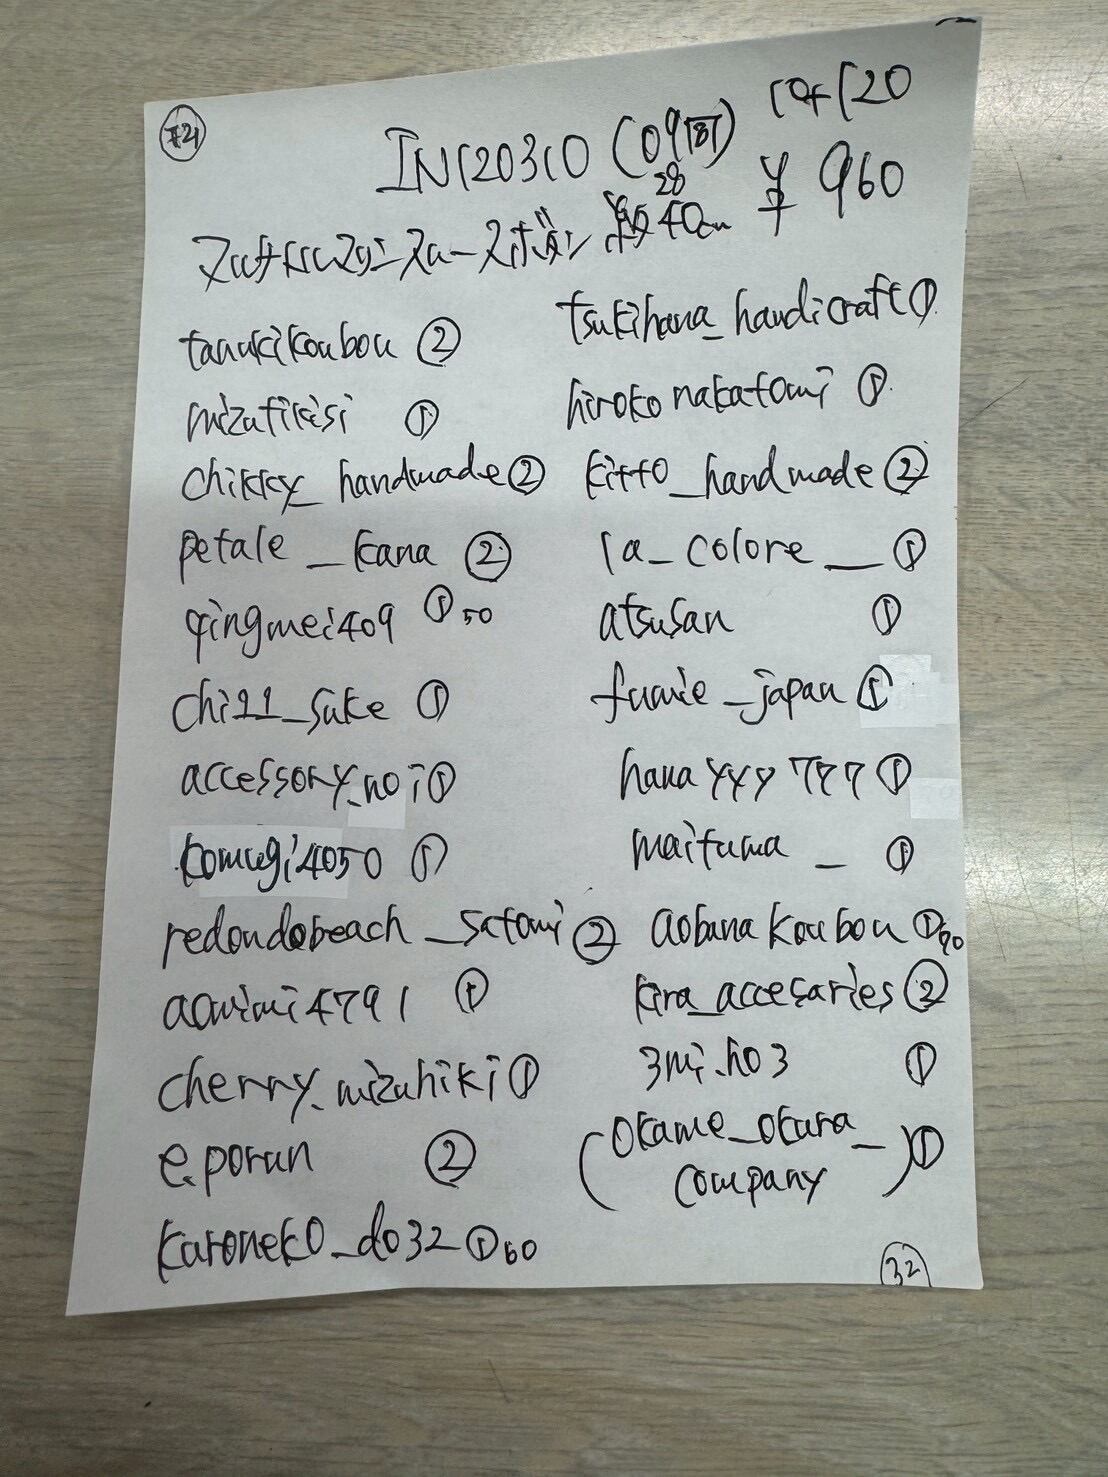 IN120310 (09
28
¥960
40cm
tanukikoubou ②
mizufikisi ①
chikky_handmade ②
petale_kana ②
qingmei409 ① 50
chi11_suke ①
accessory_noi ①
komugi4050 ①
redondobeach_satomi ②
aomimi4791 ①
cherry_mizuhiki ①
e.porun ②
karoneko_do32 ① 60
tsukihana_handicraft ①
hirokonakatomi ①
kitto_handmade ②
la_colore__ ①
atsusan ①
fumie_japan ①
hanayyy777 ①
maifuma_ ①
aobanakoubou ① 90
kira_accesaries ②
3mi.ho3 ①
(okame_okara_
company) ①
32